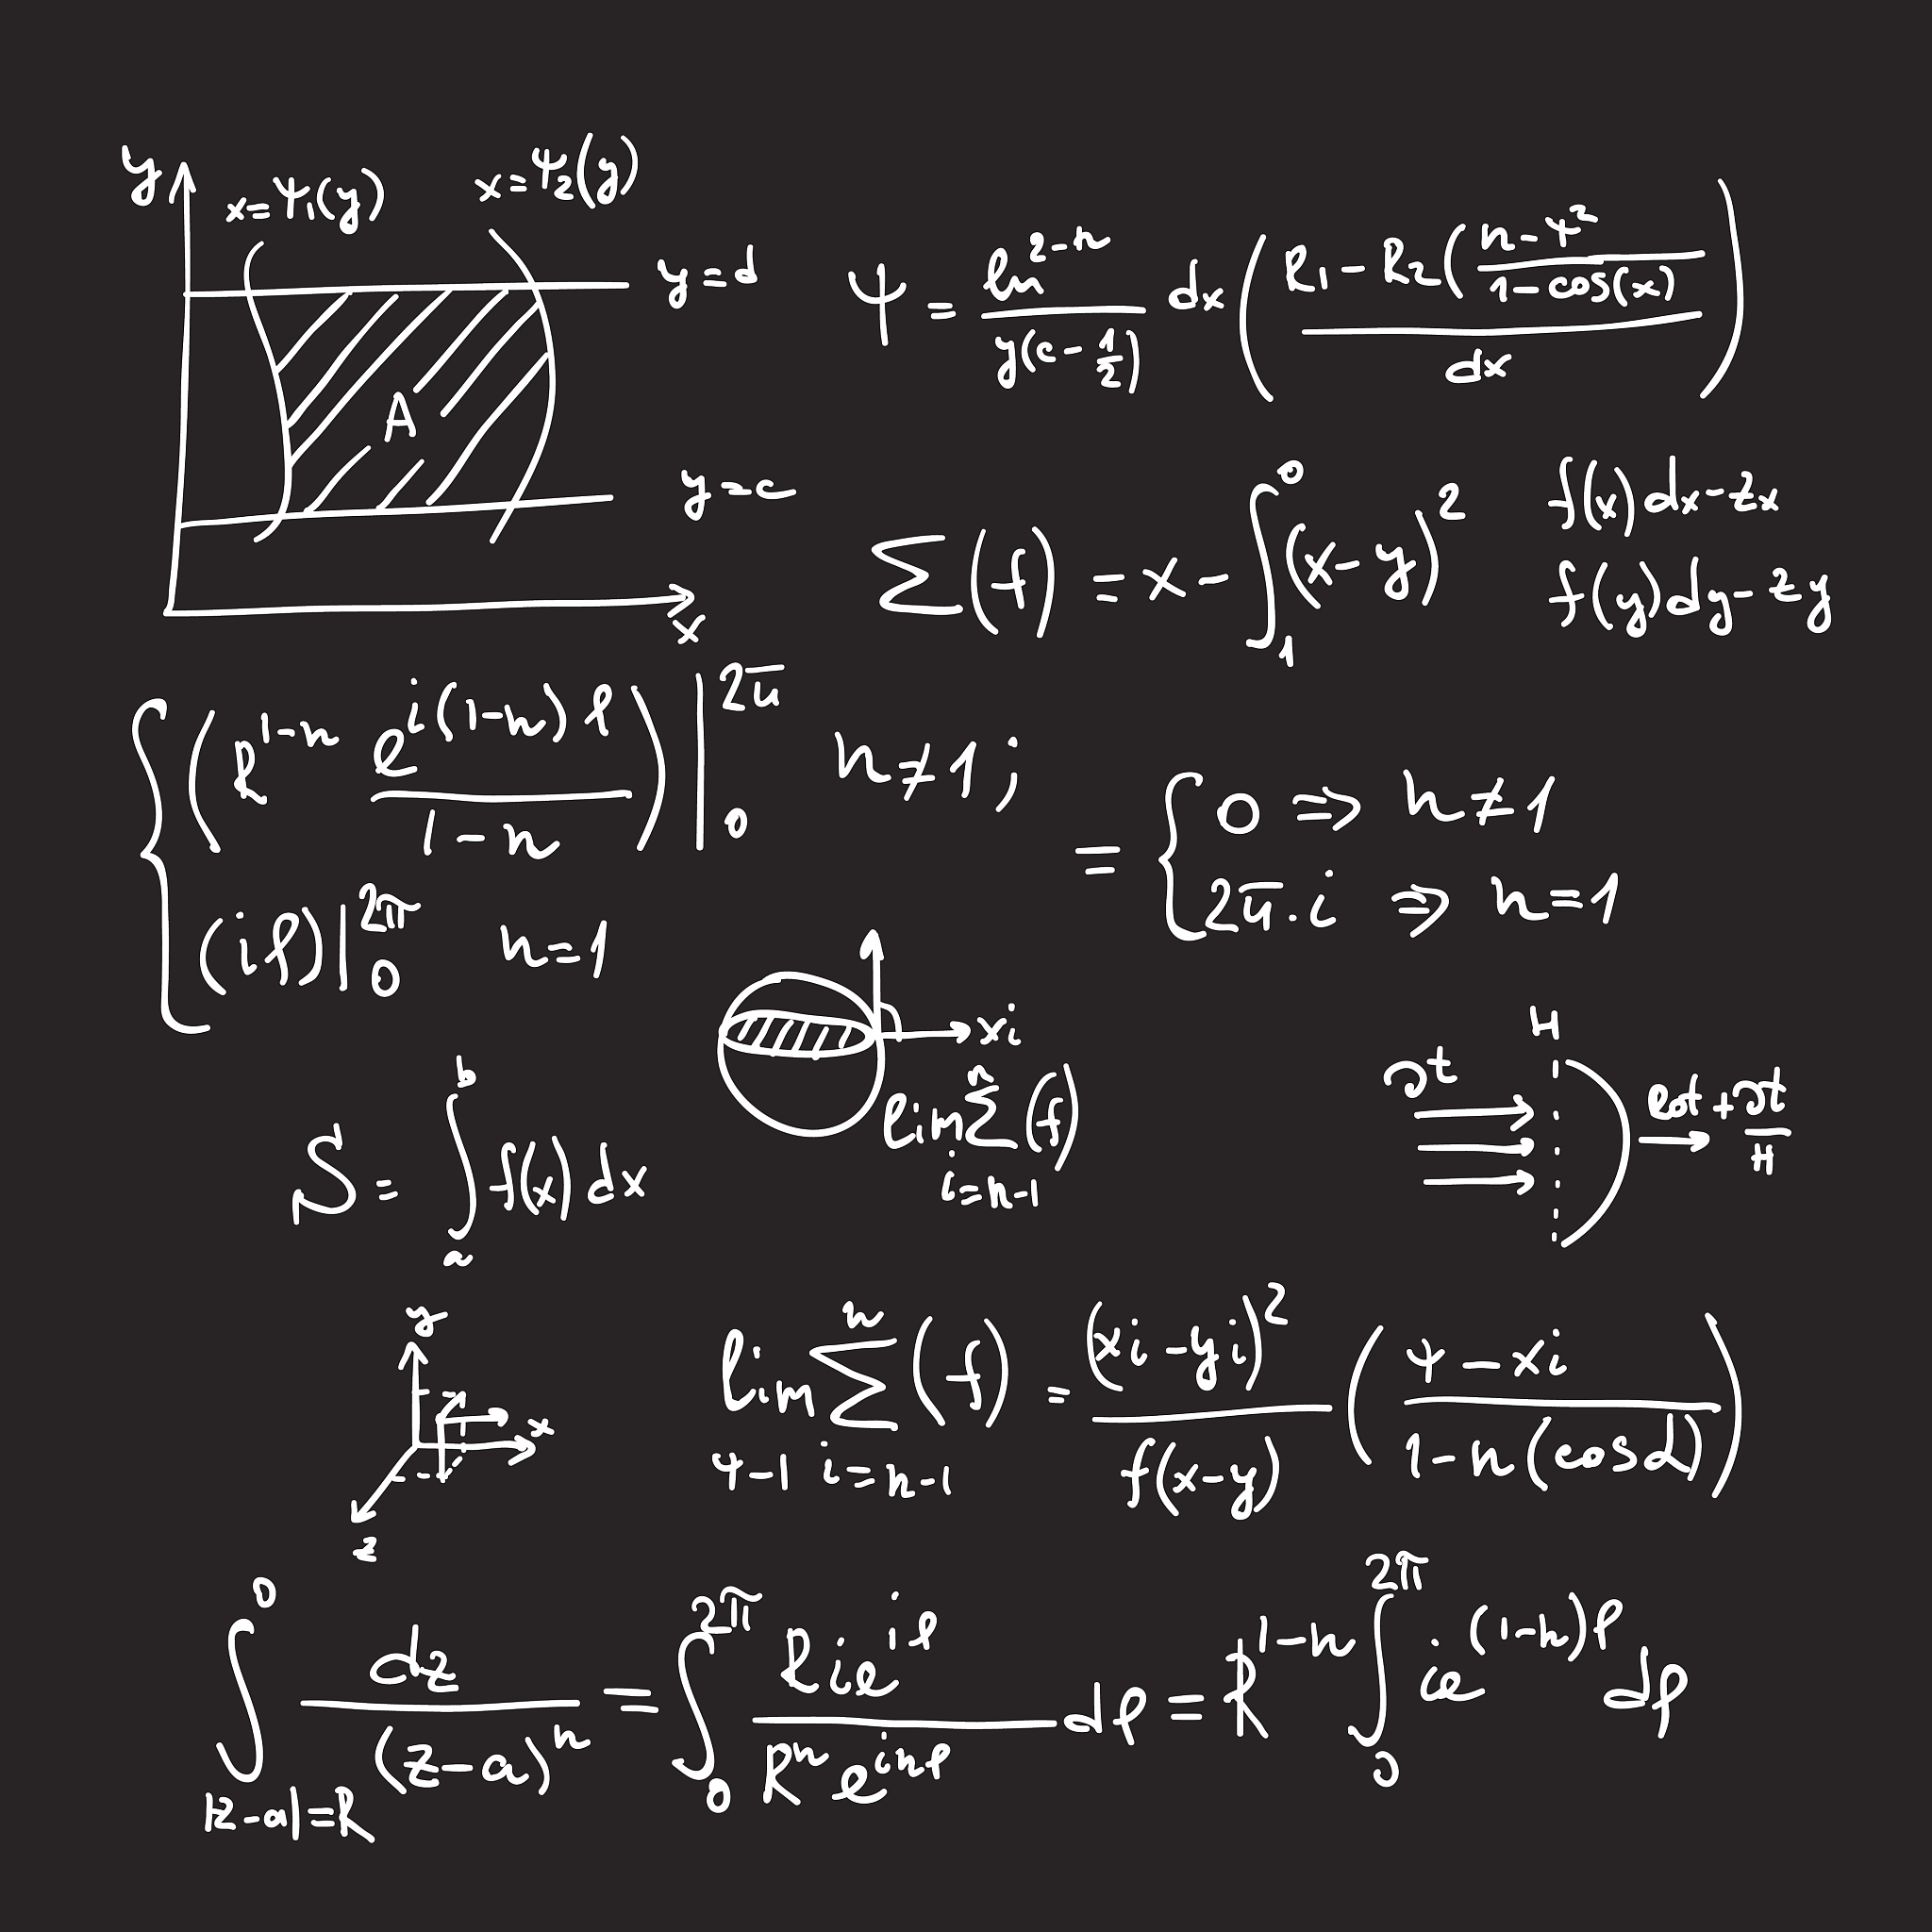 y
x=ψ₁(y)
x=ψ₂(y)
y=d
A
y=c
x
ψ = ℓm^(2-n) / y(c - 1/2) dx ( R₁ - R₂( (n-ψ²) / (1-cos(x) ) / dx )
Σ(f) = x - ∫₁⁰ (x-y)²
f(x)dx-zx
f(y)dy-zy
{ ( R^(1-n) e^(i(1-n)φ) / (1-n) ) |₀^(2π) n≠1;
(iφ)|₀^(2π) n=1
= { 0 ⇒ n≠1
2π.i ⇒ n=1
xi
lim Σ^n (f)
i=n-1
S = ∫ₐᵇ f(x)dx
H
∂t
+ ∂t / H
y
x
z
lim Σ^n (f) = (xi-yi)² / f(x-y) ( (ψ-xi) / (1-n(cosα)) )
ψ-1 i=n-1
∫⁰_(|z-a|=R) dz / (z-a)^n = ∫₀^(2π) Rie^(iφ) / R^n e^(inφ) dφ = R^(1-n) ∫₀^(2π) ie^((1-n)φ) dφ